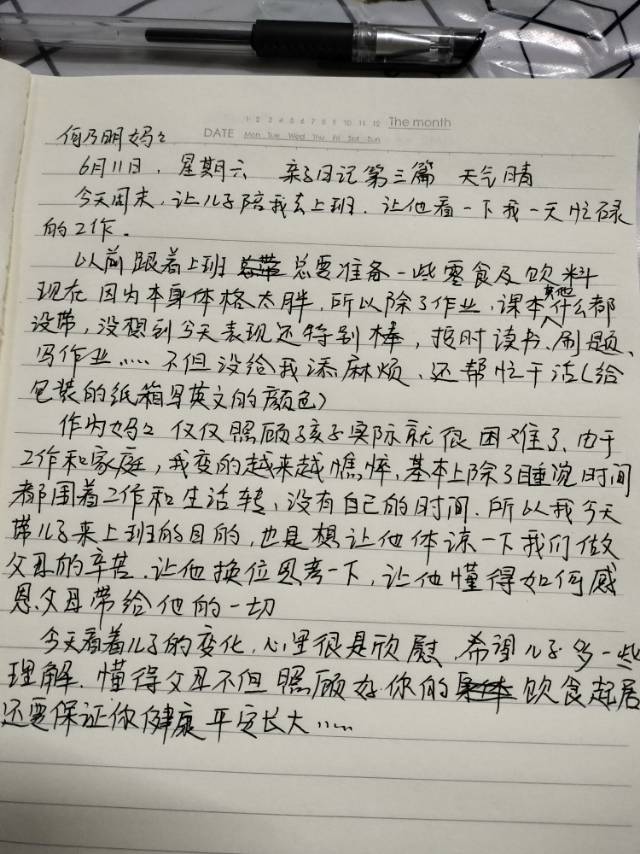 1 2 3 4 5 6 7 8 9 10 11 12 The month
DATE Mon Tue Wed Thu Fri Sat Sun
何乃明妈々
6月11日，星期六 亲子日记第三篇 天气晴
今天周末，让儿子陪我去上班．让他看一下我一天忙碌
的工作。
以前跟着上班总要准备一些零食及饮料
现在因为本身体格太胖．所以除了作业．课本其他什么都
没带，没想到今天表现还特别棒，按时读书、刷题、
写作业…… 不但没给我添麻烦．还帮忙干活（给
包装的纸箱写英文的颜色）
作为妈々仅仅照顾孩子实际就很困难了、由于
工作和家庭，我变的越来越憔悴．基本上除了睡觉时间
都围着工作和生活转，没有自己的时间．所以我今天
带儿子来上班的目的，也是想让他体谅一下我们做
父母的辛苦．让他换位思考一下，让他懂得如何感
恩．父母带给他的一切
今天看着儿子的变化，心里很是欣慰．希望儿子多一些
理解．懂得父母不但照顾好你的饮食起居
还要保证你健康平安长大……